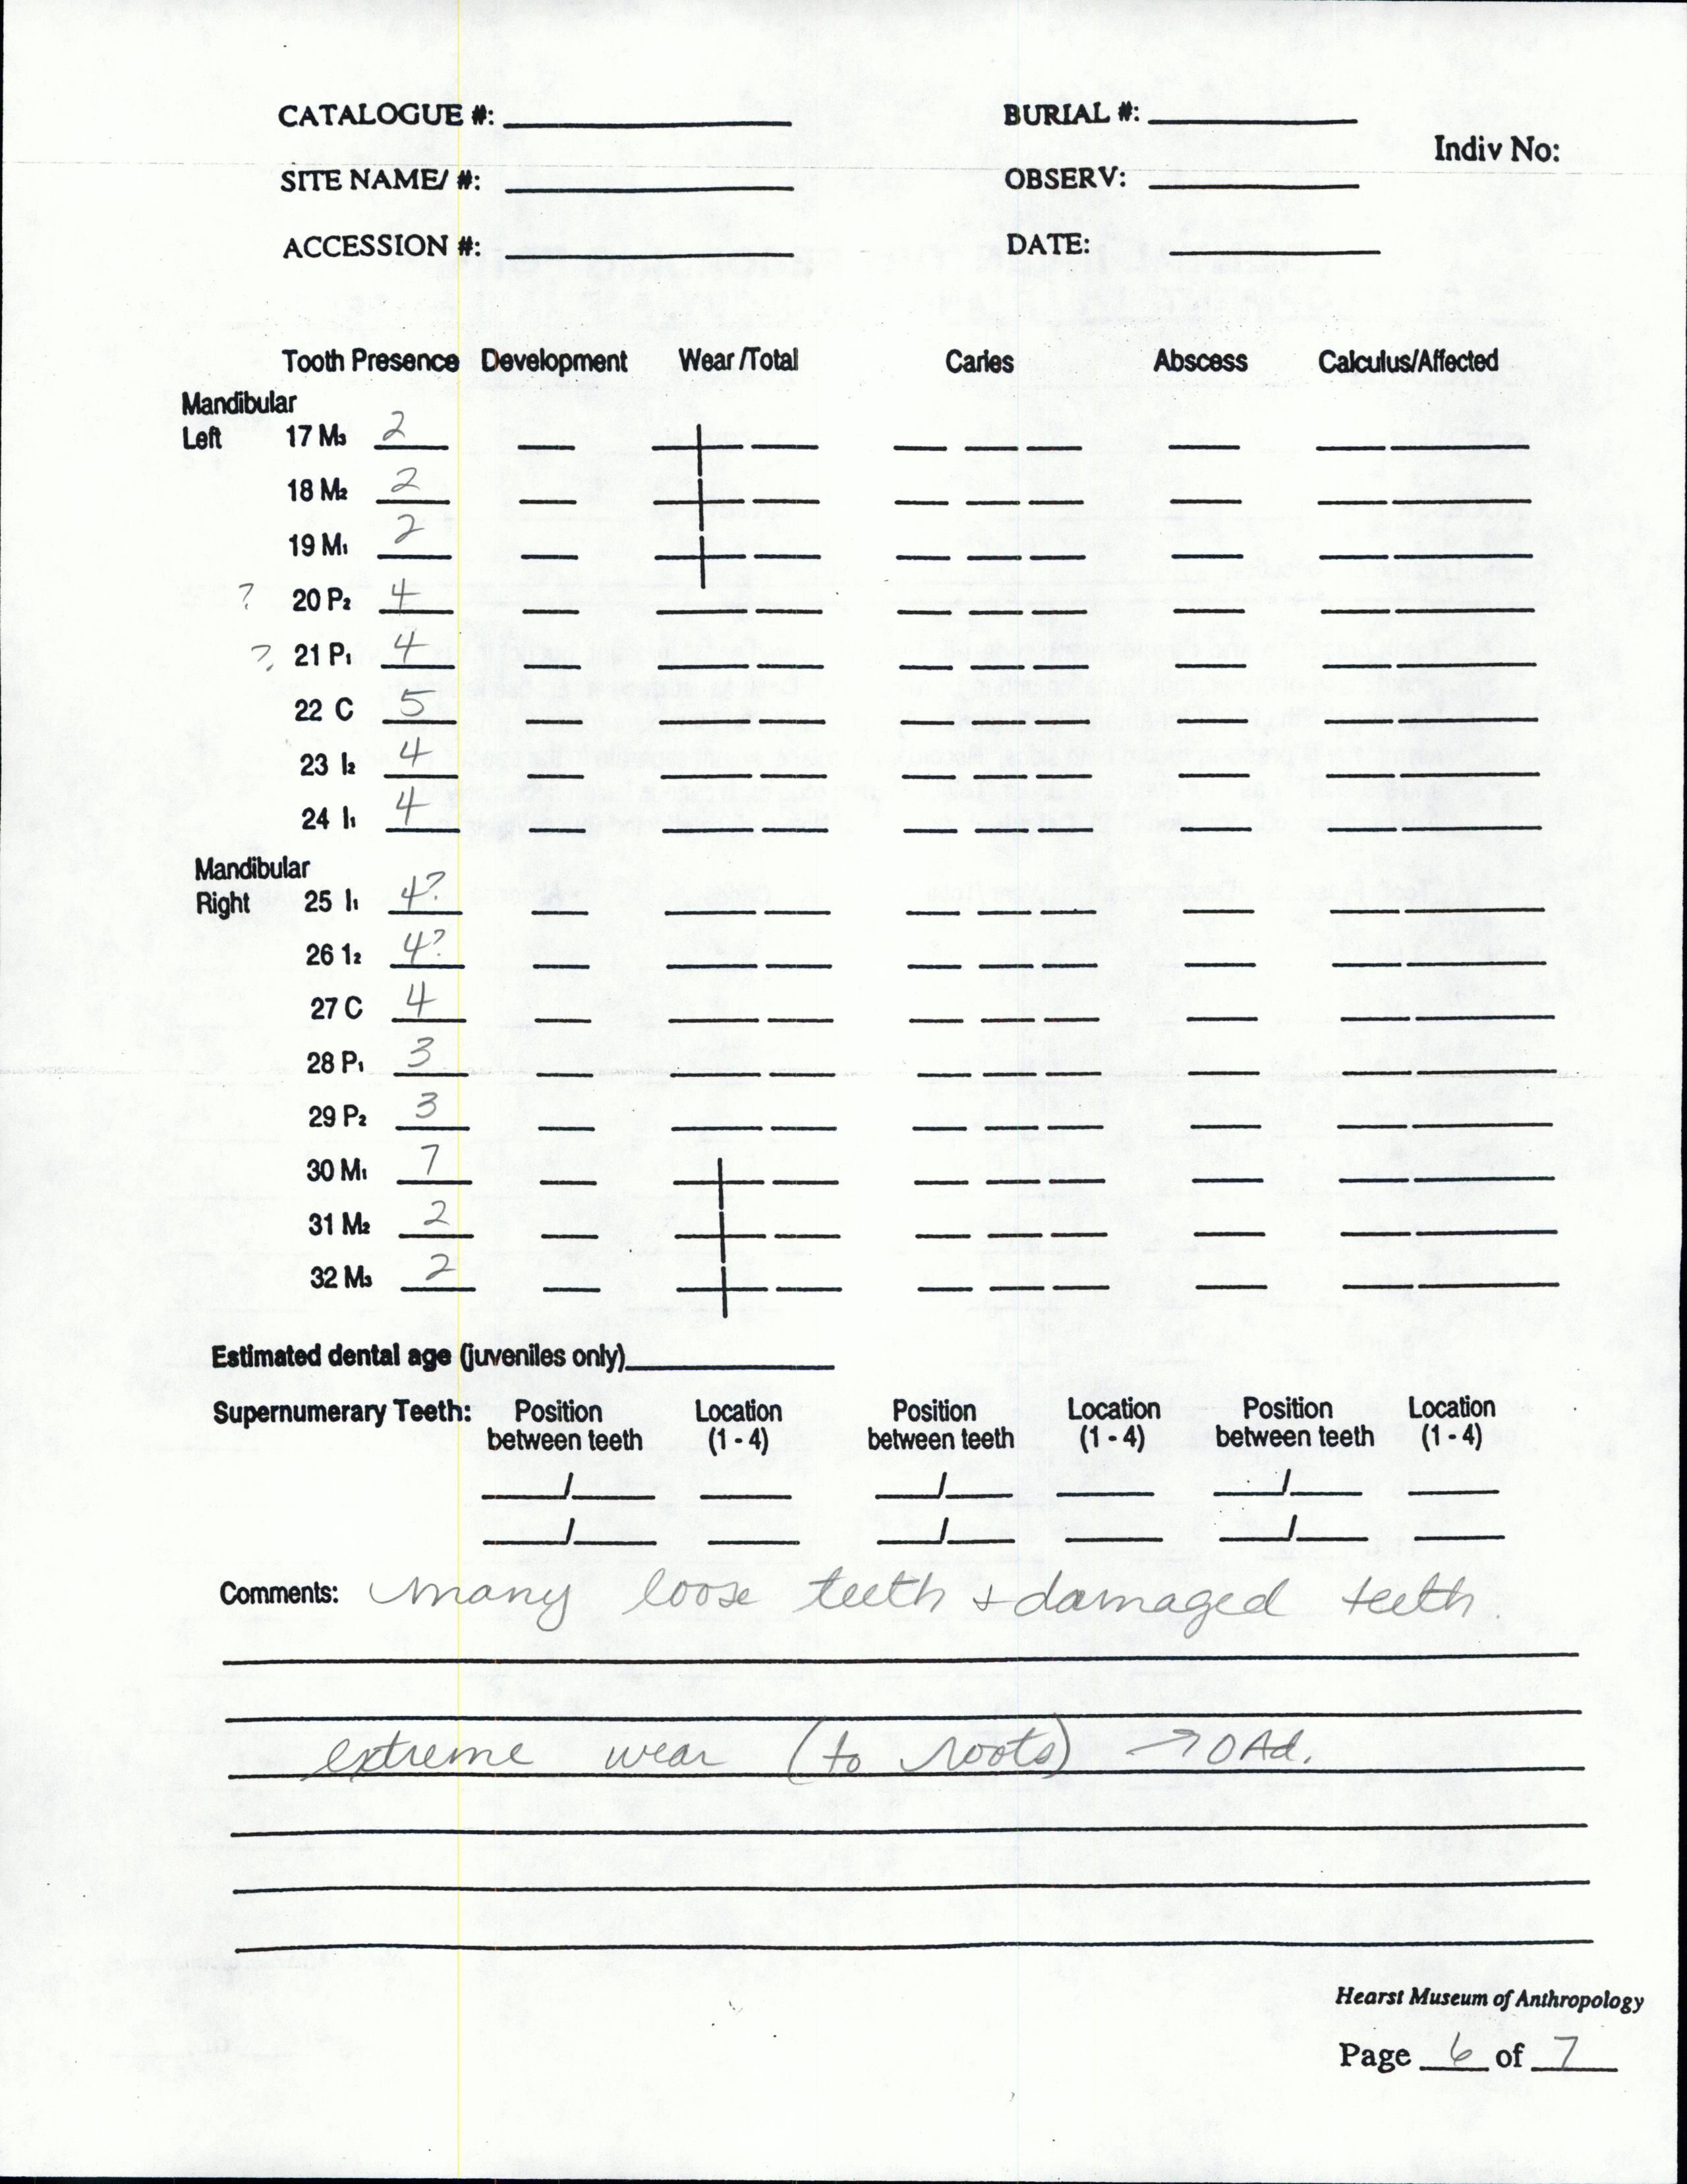 CATALOGUE #: BURIAL #:
Indiv No:
SITE NAME/ #: OBSERV:
ACCESSION #: DATE:
Tooth Presence Development Wear /Total Caries Abscess Calculus/Affected
Mandibular
Left 17 M3 2
18 M2 2
19 M1 2
? 20 P2 4
? 21 P1 4
22 C 5
23 I2 4
24 I1 4
Mandibular
Right 25 I1 4?
26 12 4?
27 C 4
28 P1 3
29 P2 3
30 M1 7
31 M2 2
32 M3 2
Estimated dental age (juveniles only)
Supernumerary Teeth: Position Location Position Location Position Location
between teeth (1 - 4) between teeth (1 - 4) between teeth (1 - 4)
/ / /
/ / /
Comments: many loose teeth + damaged teeth.
extreme wear (to roots) → OAd.
Hearst Museum of Anthropology
Page 6 of 7